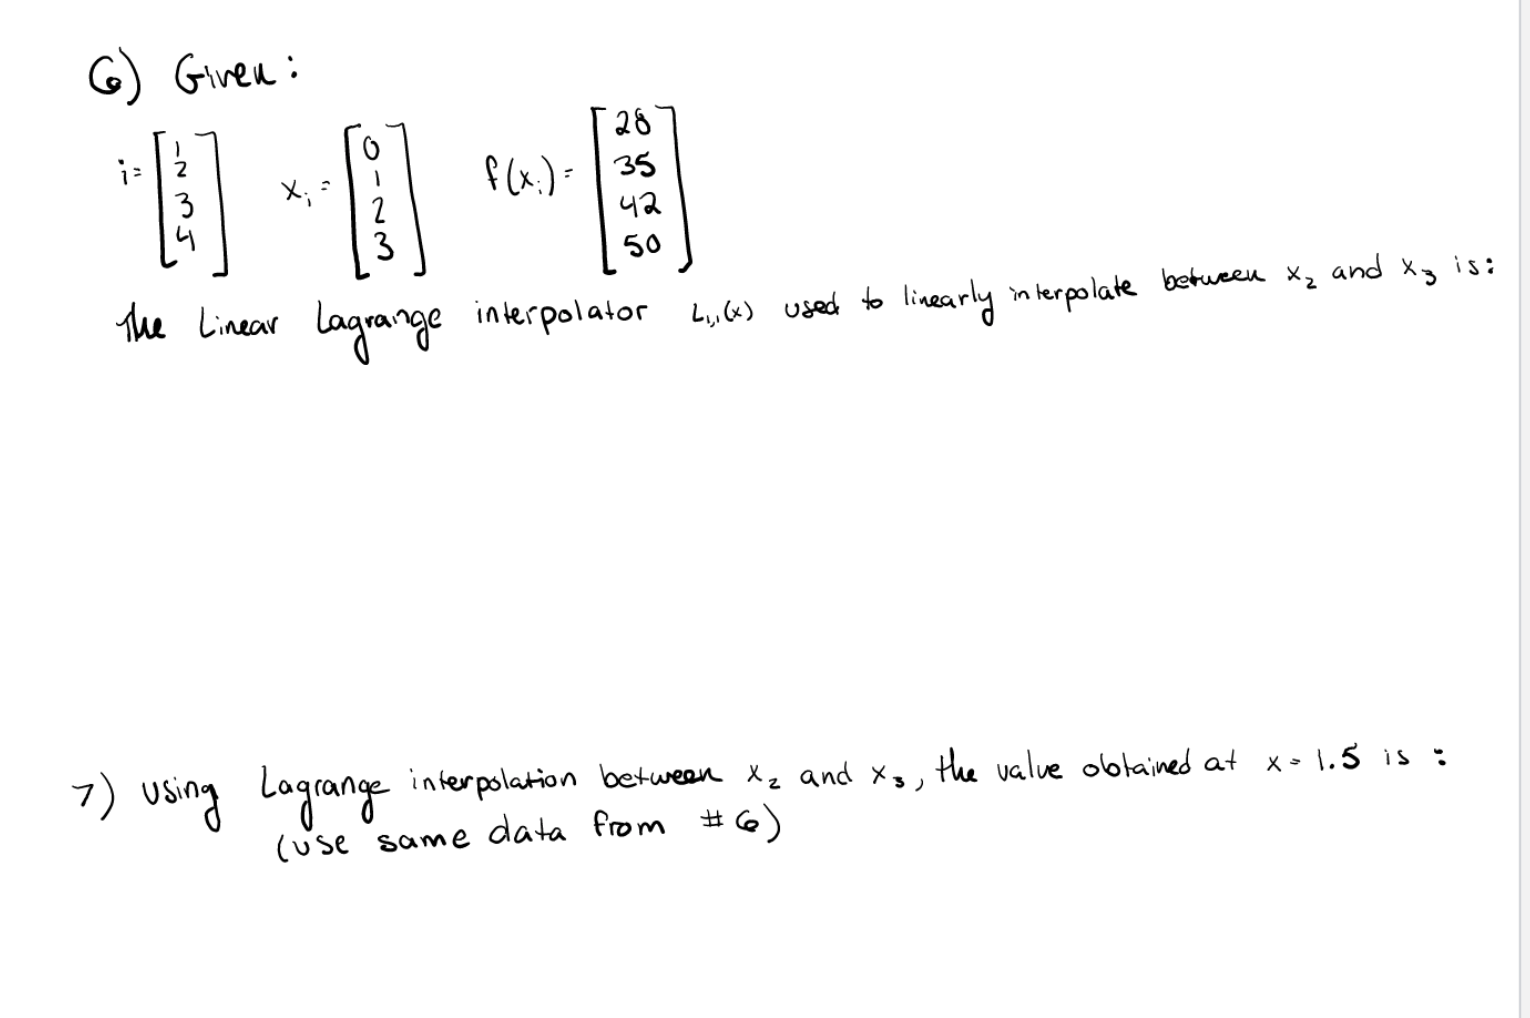 6) Given:
i= [1 2 3 4] xi = [0 1 2 3] f(xi) = [28 35 42 50]
The Linear Lagrange interpolator L1,1(x) used to linearly interpolate between x2 and x3 is:
7) Using Lagrange interpolation between x2 and x3, the value obtained at x = 1.5 is :
(use same data from #6)